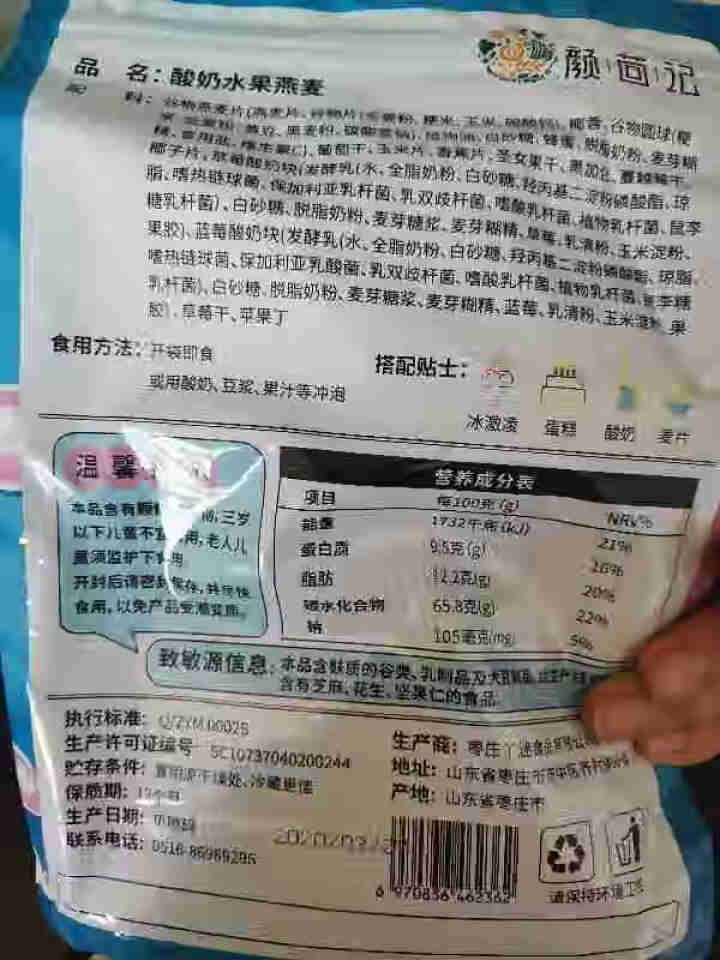 颜茴记
品 名：酸奶水果燕麦
配 料：谷物燕麦片(燕麦片、谷物片(
白砂糖、蜂蜜、脱脂奶粉、麦芽糊
葡萄干、玉米片、香蕉片、圣女果干、黑加仑、蔓越莓干、
椰子片、草莓酸奶块(发酵乳(水、全脂奶粉、白砂糖、羟丙基二淀粉磷酸酯、琼
脂、嗜热链球菌、保加利亚乳杆菌、乳双歧杆菌、嗜酸乳杆菌、植物乳杆菌、鼠李
糖乳杆菌)、白砂糖、脱脂奶粉、麦芽糖浆、麦芽糊精、草莓、乳清粉、玉米淀粉、
果胶)、蓝莓酸奶块(发酵乳(水、全脂奶粉、白砂糖、羟丙基二淀粉磷酸酯、琼脂、
嗜热链球菌、保加利亚乳酸菌、乳双歧杆菌、嗜酸乳杆菌、植物乳杆菌、鼠李糖
乳杆菌)、白砂糖、脱脂奶粉、麦芽糖浆、麦芽糊精、蓝莓、乳清粉、玉米淀粉、果
胶)、草莓干、苹果丁
食用方法：开袋即食
或用酸奶、豆浆、果汁等冲泡
搭配贴士：
冰激凌 蛋糕 酸奶 麦片
温馨
本品含有颗 三岁
以下儿童不宜 用，老人儿
童须监护下食用
开封后请密封保存，并尽快
食用，以免产品受潮变质。
营养成分表
项目 每100克(g) NRV%
能量 1732千焦(kJ) 21%
蛋白质 9.5克(g) 16%
脂肪 12.2克(g) 20%
碳水化合物 65.8克(g) 22%
钠 105毫克(mg) 5%
致敏源信息：本品含麸质的谷类、乳制品及大豆制品，
含有芝麻、花生、坚果仁的食品
执行标准：Q/ZYM 0002S
生产许可证编号 SC10737040200244
贮存条件：置阴凉干燥处、冷藏更佳
保质期：12个月
生产日期：见喷码
联系电话：0516-86969296
生产商：枣庄
地址：山东省枣庄市市中区
产地：山东省枣庄市
6 970836 462362
请保持环境卫生